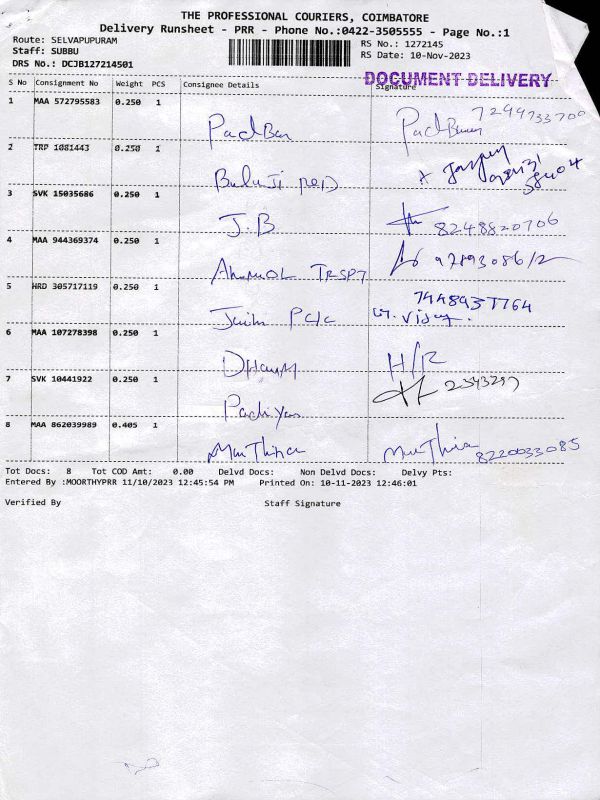 THE PROFESSIONAL COURIERS, COIMBATORE
Delivery Runsheet - PRR - Phone No.:0422-3505555 - Page No.:1
Route: SELVAPUPURAM
RS No.: 1272145
Staff: SUBBU
RS Date: 10-Nov-2023
DRS No.: DCJB127214501
DOCUMENT DELIVERY
S No Consignment No Weight PCS Consignee Details Signature
1 MAA 572795583 0.250 1 7299733700
2 TRP 1081443 0.250 1 Balaji
3 SVK 15035686 0.250 1 J.B 8248820706
4 MAA 944369374 0.250 1 TRSPT
5 HRD 305717119 0.250 1
6 MAA 107278398 0.250 1 H/R
7 SVK 10441922 0.250 1
8 MAA 862039989 0.405 1 8220033085
Tot Docs: 8 Tot COD Amt: 0.00 Delvd Docs: Non Delvd Docs: Delvy Pts:
Entered By :MOORTHYPRR 11/10/2023 12:45:54 PM Printed On: 10-11-2023 12:46:01
Verified By Staff Signature